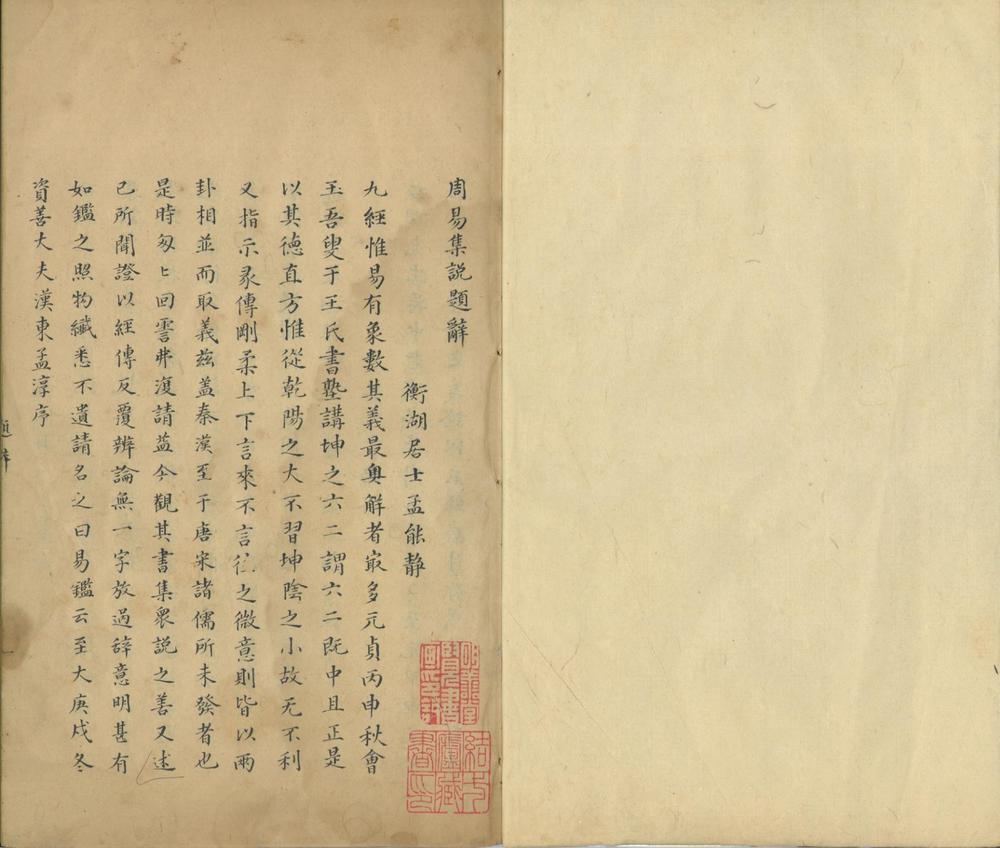 周易集説題辭
衡湖居士孟能静
九經惟易有象數其義最奥解者㝡多元貞丙申秋會
玉吾叟于王氏書塾講坤之六二謂六二既中且正是
以其德直方惟從乾陽之大不習坤陰之小故无不利
又指示彖傳剛柔上下言來不言往之微意則皆以兩
卦相並而取義兹盖秦漢至于唐宋諸儒所未發者也
是時匆匕回霅弗復請益今觀其書集衆説之善又述
已所聞證以經傳反覆辨論無一字放過辝意明甚有
如鑑之照物纎悉不遺請名之曰易鑑云至大庚戌冬
資善大夫漢東孟淳序
題辭
一
結弌廬藏書印